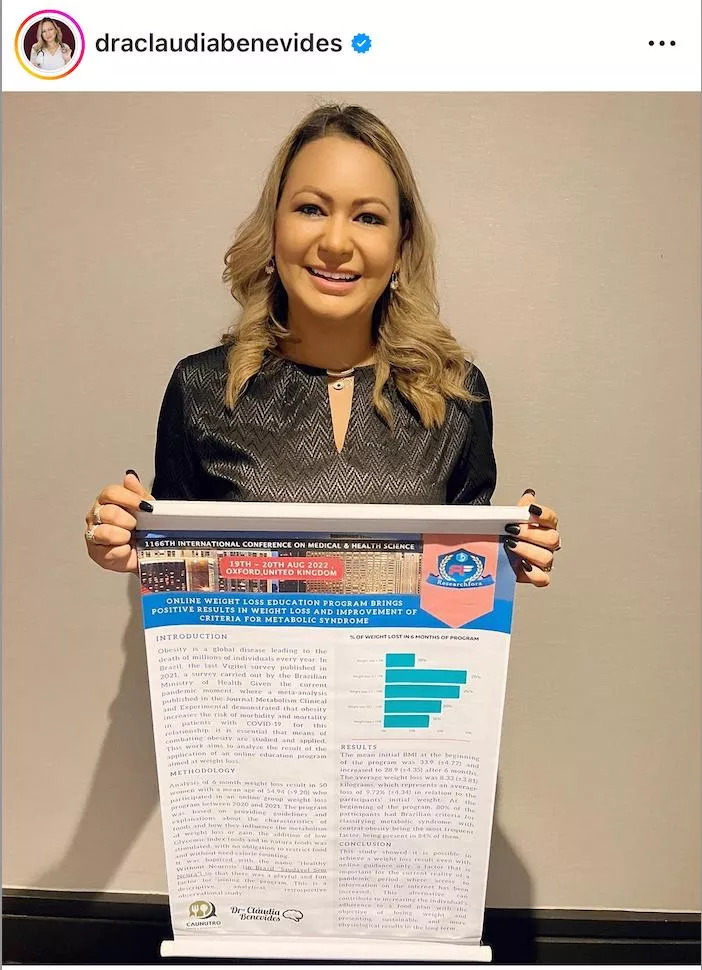 draclaudiabenevides
1166TH INTERNATIONAL CONFERENCE ON MEDICAL & HEALTH SCIENCE
19TH - 20TH AUG 2022,
OXFORD, UNITED KINGDOM
RF
Researchfora
ONLINE WEIGHT LOSS EDUCATION PROGRAM BRINGS
POSITIVE RESULTS IN WEIGHT LOSS AND IMPROVEMENT OF
CRITERIA FOR METABOLIC SYNDROME
INTRODUCTION
Obesity is a global disease leading to the
death of millions of individuals every year. In
Brazil, the last Vigitel survey published in
2021, a survey carried out by the Brazilian
Ministry of Health Given the current
pandemic moment, where a meta-analysis
published in the Journal Metabolism Clinical
and Experimental demonstrated that obesity
increases the risk of morbidity and mortality
in patients with COVID-19, for this
relationship, it is essential that means of
combating obesity are studied and applied.
This work aims to analyze the result of the
application of an online education program
aimed at weight loss.
METHODOLOGY
Analysis of 6-month weight loss result in 50
women with a mean age of 54.94 (±9.20) who
participated in an online group weight loss
program between 2020 and 2021. The program
was based on providing guidelines and
explanations about the characteristics of
foods and how they influence the metabolism
of weight loss or gain, the addition of low
Glycemic Index foods and in natura foods was
stimulated, with no obligation to restrict food
and without need calorie counting.
It was baptized with the name "Healthy
Without Neurosis" (in Brazil "Saudável Sem
Neura") so that there was a playful and fun
factor for joining the program. This is a
descriptive, analytical, retrospective
observational study.
CAUNUTRO
Dra Cláudia
Benevides
% OF WEIGHT LOST IN 6 MONTHS OF PROGRAM
RESULTS
The mean initial BMI at the beginning
of the program was 33.9 (±4.77) and
increased to 28.9 (±4.35) after 6 months.
The average weight loss was 8.33 (±3.81)
kilograms, which represents an average
loss of 9.72% (±4.34) in relation to the
participants' initial weight. At the
beginning of the program, 80% of the
participants had Brazilian criteria for
classifying metabolic syndrome, with
central obesity being the most frequent
factor, being present in 84% of them.
CONCLUSION
This study showed it is possible to
achieve a weight loss result even with
online guidance only, a factor that is
important for the current reality of
pandemic period where access to
information on the internet has been
This alternative can
contribute to increasing the individual's
adherence to a food plan with the
objective of losing weight and
presenting sustainable and more
physiological results in the long term.